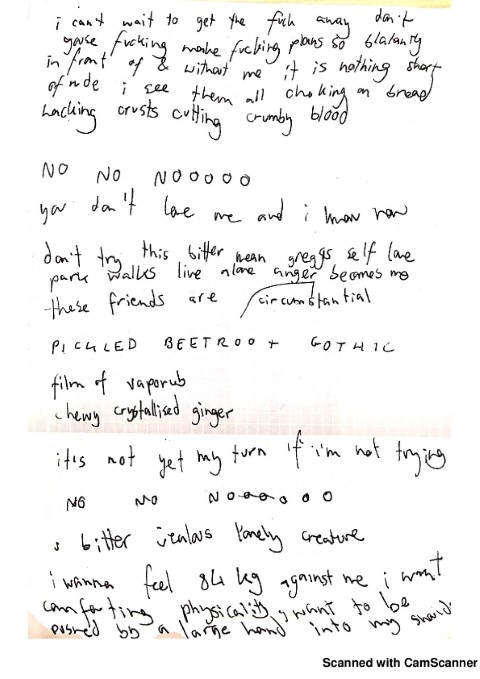 i can't wait to get the fuck away don't
youse fucking make fucking plans so blatantly
in front of & without me it is nothing short
of rude i see them all choking on bread
hacking crusts cutting crumby blood
NO NO NOOOOO
you don't love me and i know now
don't try this bitter mean greggs self love
park walks live alone anger becomes me
these friends are circumstantial
PICKLED BEETROOT GOTHIC
film of vaporub
chewy crystallised ginger
it's not yet my turn if i'm not trying
NO NO NOOOOOO
bitter jealous lonely creature
i wanna feel 84 kg against me i want
comforting physicality, want to be
pushed by a large hand into my
Scanned with CamScanner